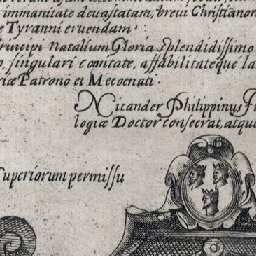 immanitate deuastatam, breui Christiano
Tyranni eruendam
rincipi Natalium Gloria splendidissimo
singulari comitate, affabilitateque la
Patrono et Mecoenati
Nicander Philippinus
logiæ Doctor consecrat, atqu
Superiorum permissu